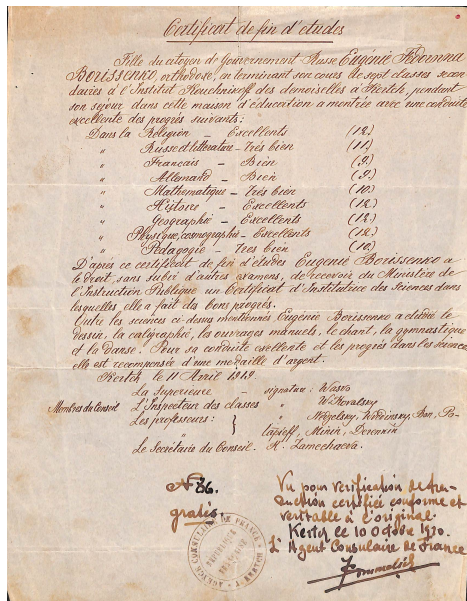 Certificat de fin d'etudes
Fille du citoyen de Gouvernement Russe Eugénie Fedorovna
Borissenko, orthodose, en terminant son cours de sept classes secon
daires à l'Institut Kouchnikoff des demoiselles à Kertch, pendant
son sejour dans cette maison d'éducation a montrée avec une conduite
excellente des progrès suivants:
Dans la Réligion – Excellents (12)
" Russe et littérature – Très bien (11)
" Français – Bien (9)
" Allemand – Bien (9)
" Mathematique – Très bien (10)
" Histoire – Excellents (12)
" Geographie – Excellents (12)
" Physique, cosmographie – Excellents (12)
" Pedagogie – Tres bien (10)
D'après ce certificat de fin d'études Eugenie Borissenko a
le droit, sans subir d'autres examens, de recevoir du Ministère de
l'Instruction Publique un Certificat d'Institutrice des Sciences dans
lesquelles elle a fait du bons progrès.
Outre les sciences ci-dessus mentionnés Eugénie Borissenko a étudié le
dessin, la caligraphie, les ouvrages manuels, le chant, la gymnastique
et la danse. Pour sa conduite exellente et les progrès dans les sciences
elle est recompensée d'une medaille d'argent.
Kertch, le 11 Avril 1919.
La Superieure – signature: Wasso
Membres du Conseil L'Inspecteur des classes " W. Kovalsky
Les professeurs: } " Ban, Po-
" Minin, Derevnin
Le Secrétaire du Conseil. H. Zamechaeva.
N. 86.
gratis
Vu pour verification de tra-
duction certifiée conforme et
veritable à l'original.
Kertch le 10 Octobre 1920.
L'Agent Consulaire de France
AGENCE CONSULAIRE DE FRANCE
REPUBLIQUE FRANÇAISE